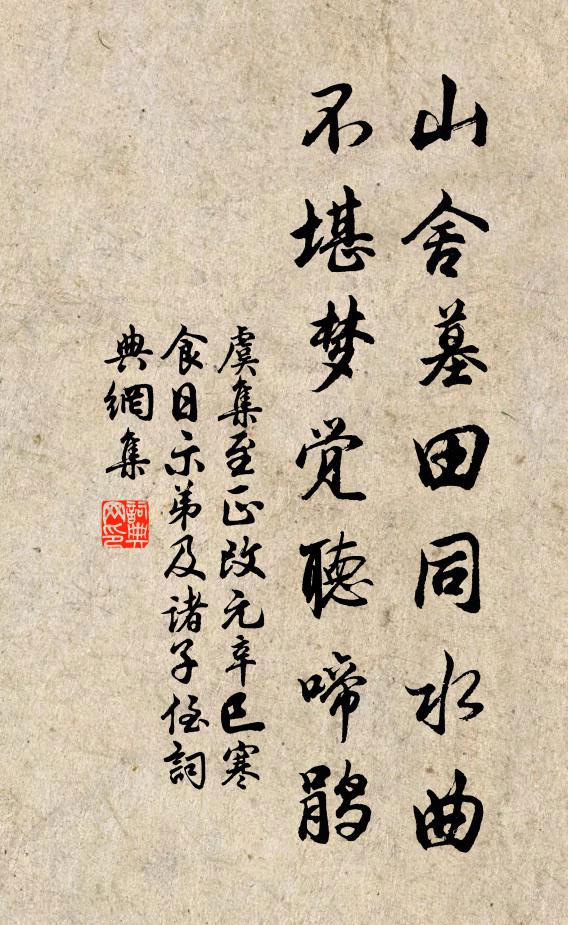 山舍墓田同水曲
不堪梦觉聽啼鹃
虞集至正改元辛巳寒
食日示弟及诸子侄詞
典網集
詞典
网印